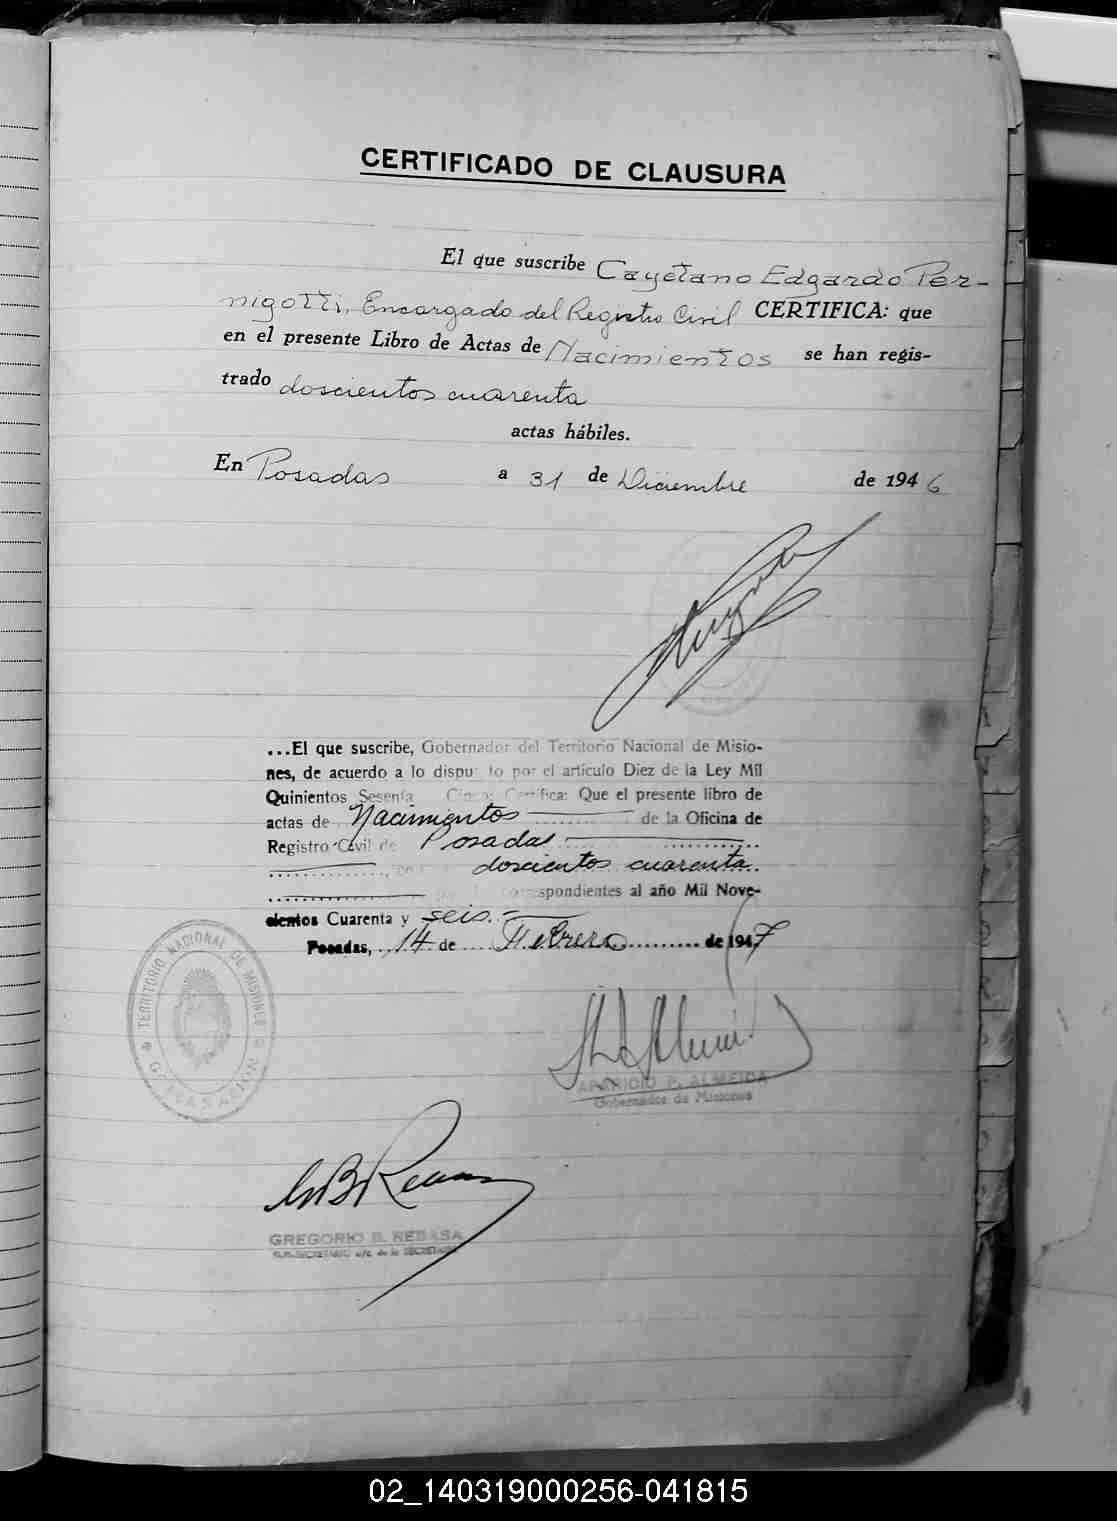 CERTIFICADO DE CLAUSURA
El que suscribe Cayetano Edgardo Per-
nigotti, Encargado del Registro Civil CERTIFICA: que
en el presente Libro de Actas de Nacimientos se han regis-
trado doscientos cuarenta
actas hábiles.
En Posadas a 31 de Diciembre de 1946
...El que suscribe, Gobernador del Territorio Nacional de Misio-
nes, de acuerdo a lo dispu to por el artículo Diez de la Ley Mil
Quinientos Sesenta Cinco: Certifica: Que el presente libro de
actas de Nacimientos de la Oficina de
Registro Civil de Posadas
doscientos cuarenta
spondientes al año Mil Nove-
cientos Cuarenta y seis.-
Posadas, 14 de Febrero de 1947
TERRITORIO NACIONAL DE MISIONES
GOBERNACION
APARICIO P. ALMEIDA
Gobernador de Misiones
GREGORIO B. REBASA
SUB-SECRETARIO a/c. de la SECRETARIA
02_140319000256-041815